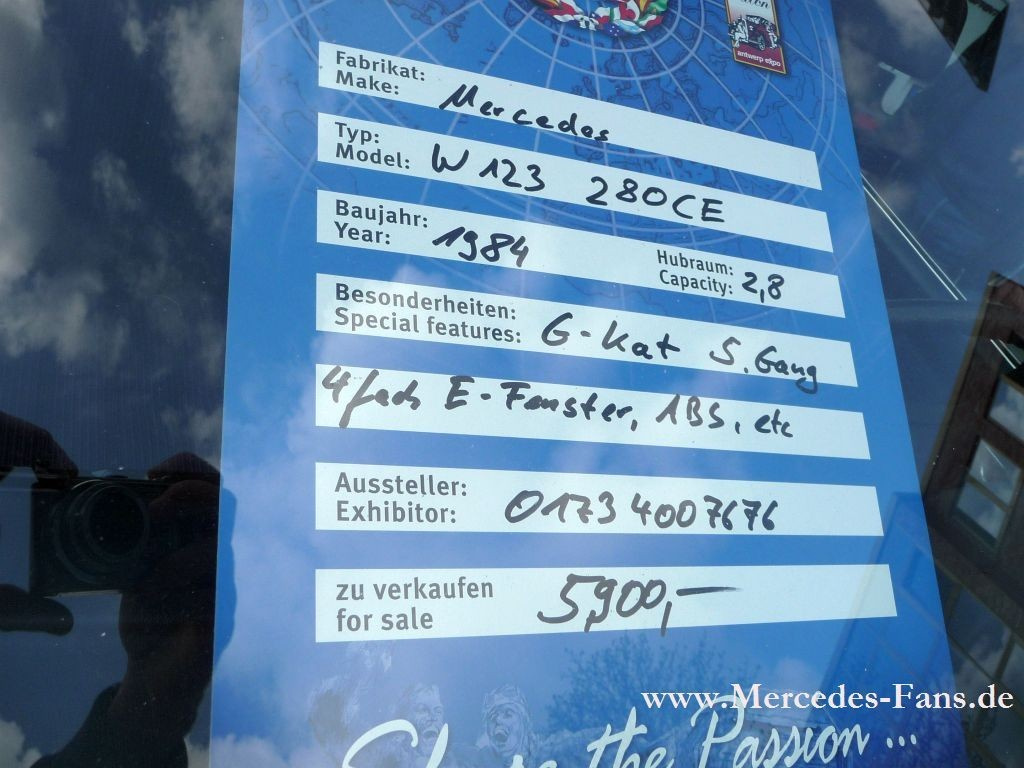 antwerp expo
Fabrikat:
Make: Mercedes
Typ:
Model: W 123 280CE
Baujahr:
Year: 1984
Hubraum:
Capacity: 2,8
Besonderheiten:
Special features: G-Kat 5. Gang
4fach E-Fenster, ABS, etc
Aussteller:
Exhibitor: 0173 4007676
zu verkaufen
for sale 5,900,-
the Passion ...
www.Mercedes-Fans.de